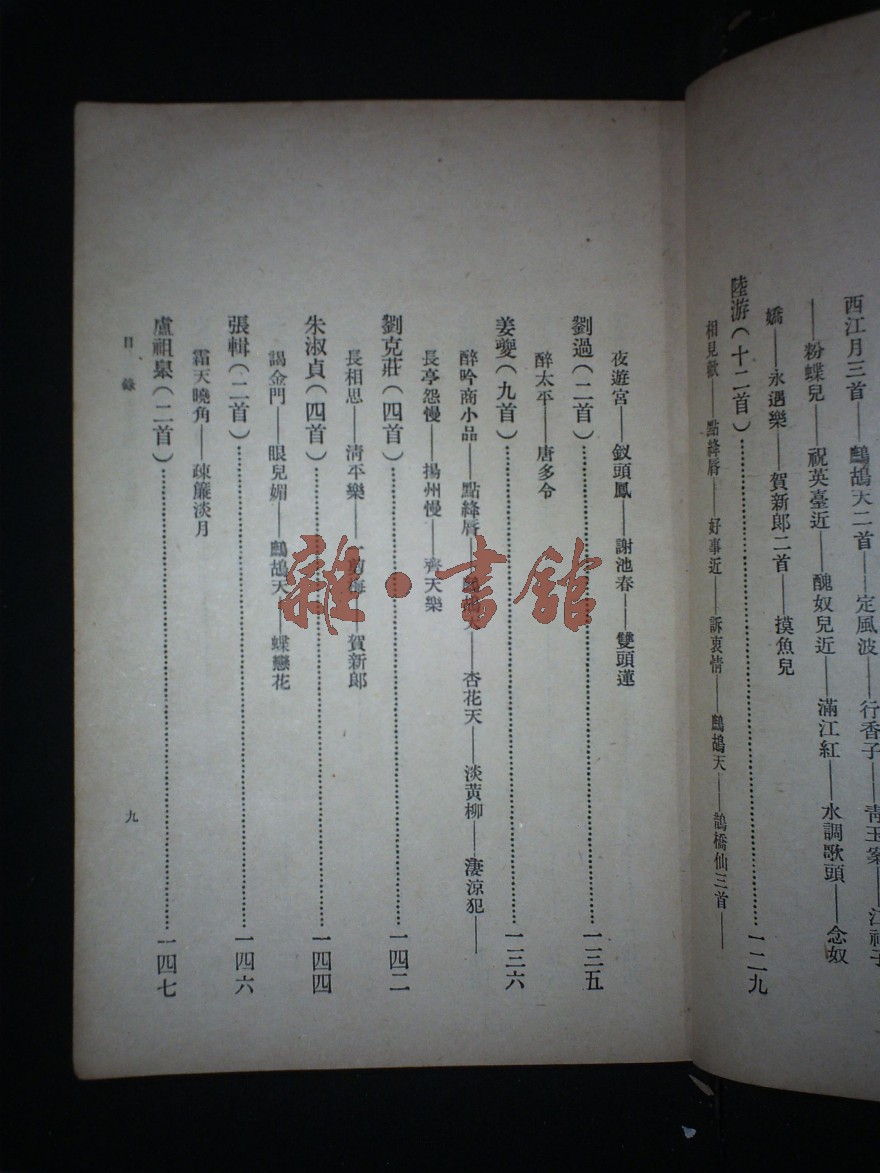 西江月三首——鷓鴣天二首——定風波——行香子——青玉案——江神子
——粉蝶兒——祝英臺近——醜奴兒近——滿江紅——水調歌頭——念奴
嬌——永遇樂——賀新郎二首——摸魚兒
陸游(十二首)……一二九
相見歡——點絳唇——好事近——訴衷情——鷓鴣天——鵲橋仙三首——
夜遊宮——釵頭鳳——謝池春——雙頭蓮
劉過(二首)……一三五
醉太平——唐多令
姜夔(九首)……一三六
醉吟商小品——點絳唇——鷓鴣天——杏花天——淡黃柳——淒涼犯——
長亭怨慢——揚州慢——齊天樂
劉克莊(四首)……一四二
長相思——清平樂——一剪梅——賀新郎
朱淑貞(四首)……一四四
謁金門——眼兒媚——鷓鴣天——蝶戀花
張輯(二首)……一四六
霜天曉角——疎簾淡月
盧祖皋(二首)……一四七
目錄
九
雜·書館